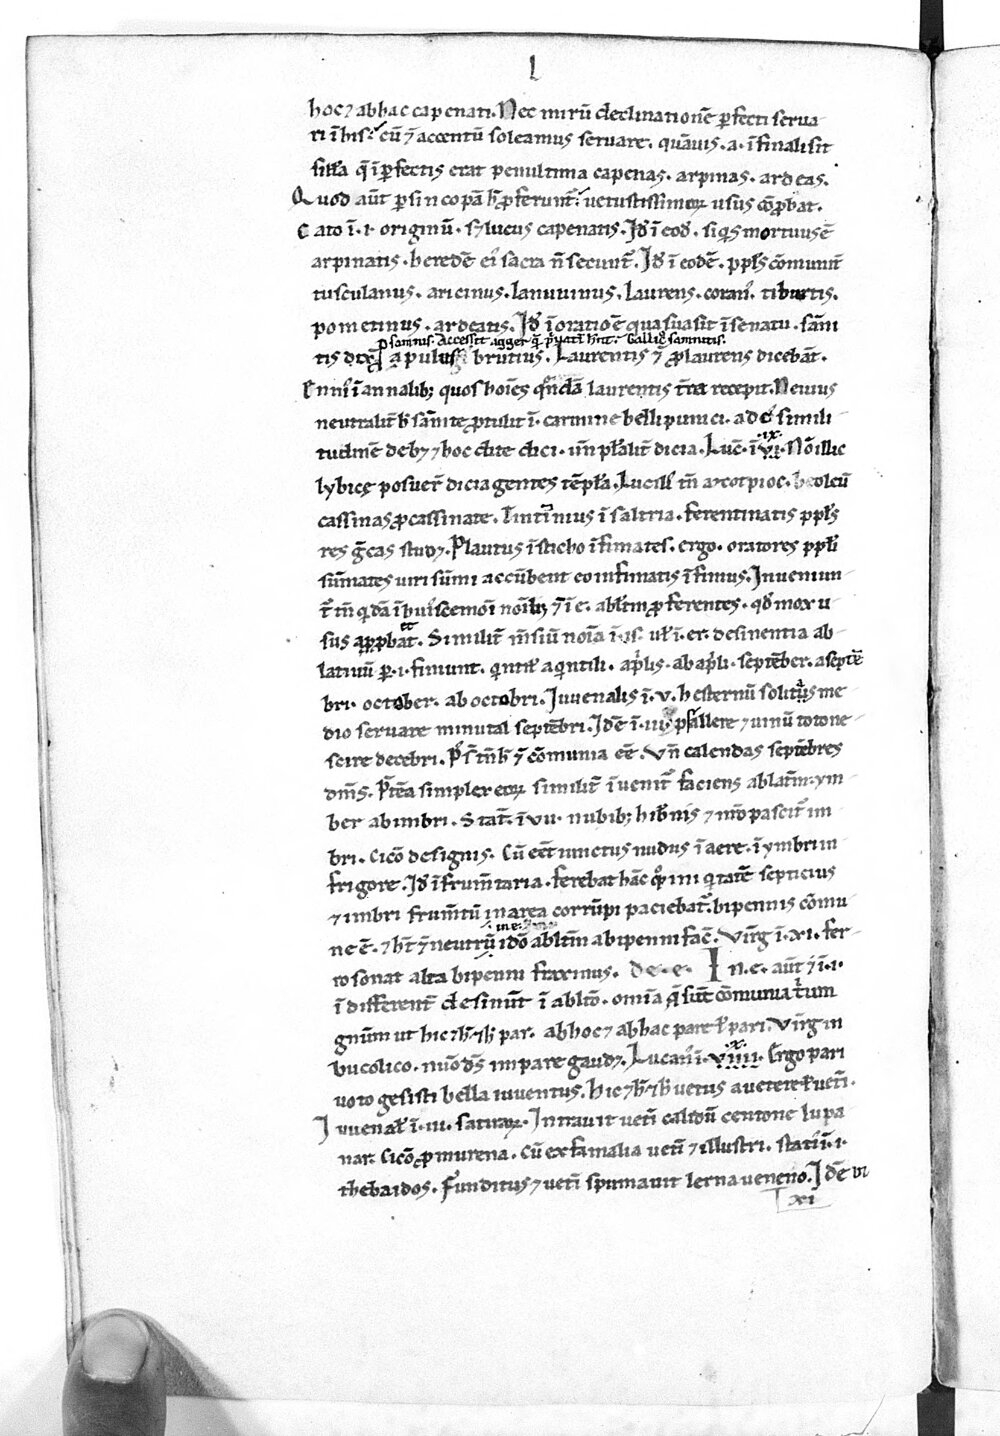 l
hoc ⁊ ab hac capenati. Nec mirū declinationē pfecti serua
ri ī his. cū ⁊ accentū soleamus seruare. quāuis .a. ī finali sit
sillā q̄ ī pfectis erat penultima capenas. arpinas. ardeas.
Quod aūt p sincopā h̄ pferunt̄. uetustissimoꝝ usus cōpbat.
Cato ī .i. originū. s; lucus capenatis. Id̄ ī eod̄. siqis mortuus ē
arpinatis. heredē ei sacra n̄ secunt̄. Id̄ ī eodē. ppl's cōmunit̄
tusculanus. aricinus. lanuuinus. Laurens. coran'. tiburtis.
pometinus. ardeatis. Id̄ ī oratiōe qua suasit ī senatu. sāni
p samnis. Accessit agger q̄
tis apulus brutius. Laurentis ⁊ p laurens dicebāt.
Enni' ī annalib; quos hoīes qn̄dā laurentis t̄ra recepit. Neuius
neutralit̄ h' sānite ptulit ī. carmine belli punici. ad ei' simili
tudinē deb; ⁊ hoc dite dici. un̄ pl'alit̄ dicia. Luc̄. ī .vi. Nō illic
.ix.
lybicę posuer̄ dicia gentes tēpl'a. Lucill' in̄
cassinas p cassinate. Tintinius ī saltria. ferentinatis ppl's
res grēcas stud;. Plautus ī sticho īfimates. ergo. oratores ppl'i
sūmates uiri sūmi accūbent eo infimatis īfimus. Inueniun
t̄ in̄ qidā ī hui'scemōi noīb; ⁊ ī .e. abl'tm pferentes. qd̄ mox u
sus appbat. Similit̄ m̄siū noīa ī .is. ul' ī .er. desinentia ab
latiuū p .i. finiunt. qintil' a qintili. apl'is. ab apl'i. septēber. a septē
bri. october. ab octobri. Iuuenalis ī .v. hesternū solitus me
dio seruare minutal septēbri. Idē ī .iii. psallere ⁊ uinū totone
scire decēbri. cōmunia eē. Vn̄ calendas septēbres
dm̄s. simplex eoꝝ similit̄ īuenit̄ faciens ablatm̄ ym
ber ab imbri. Stat̄. ī .vii. nubib; hib'nis ⁊ pascit̄ im
bri. Cicō de signis. Cū eēt uinctus nudus ī aere. ī ymbri in
frigore. Id̄ ī frum̄taria. ferebat hāc septicius
⁊ imbri frum̄tū in area corrūpi paciebat̄. bipennis cōmu
ne ē. ⁊ h't ⁊ neutrū ideo abl'tm a bipenni fac̄. Virḡ ī .xi. fer
ro sonat alta bipenni fraxinus. de .e. In .e. aūt ⁊ ī .i.
ī different̄ desinūt ī ablt̄o. omīa q̄ sūt cōmunia t̄um
gnūm ut hic ⁊ h' ⁊ h' par. ab hoc ⁊ ab hac pare ul' pari. Virḡ in
bucolico. nūo d's impare gaud;. Lucan' ī .viiii. Ergo pari
.x.
uoto gesisti bella iuuentus. Hic ⁊ h' ⁊ h' uetus a uetere ul' ueti.
Iuuenal' ī .iii. satiraꝝ. Intrauit ueti calidū centone lupa
nar. Cicō p murena. Cū ex familia ueti ⁊ illustri. stati' ī .i.
thebaidos. Funditus ⁊ ueti spumauit lerna ueneno. Idē vi
xi